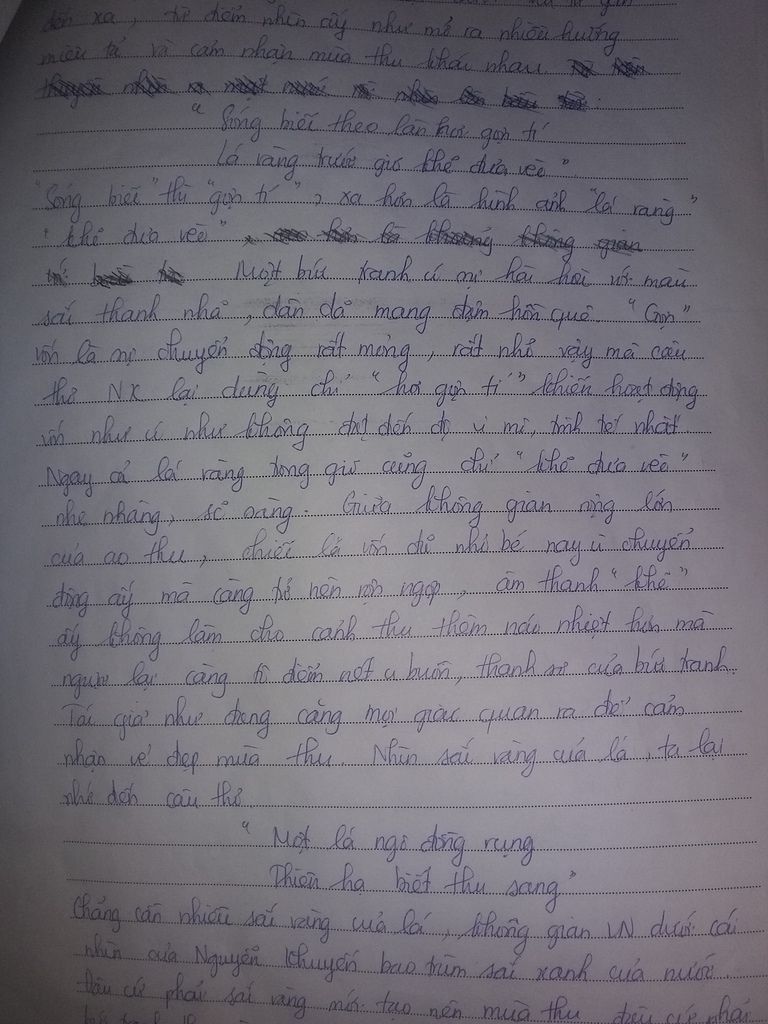 đến xa, từ điểm nhìn ấy như mở ra nhiều hướng
miêu tả và cảm nhận mùa thu khác nhau
" Sóng biếc theo làn hơi gợn tí
Lá vàng trước gió khẽ đưa vèo "
"Sóng biếc" thì "gợn tí", xa hơn là hình ảnh "lá vàng"
"khẽ đưa vèo". Một bức tranh có sự hài hoà với màu
sắc thanh nhã, dân dã mang đậm hồn quê. "Gợn"
vốn là sự chuyển động rất mỏng, rất nhỏ vậy mà câu
thơ NK lại dùng chỉ "hơi gợn tí" khiến hoạt động
vốn như có như không đạt đến độ vi mi, tinh tế nhất
Ngay cả lá vàng trong gió cũng chỉ "khẽ đưa vèo"
nhẹ nhàng, sẽ sàng. Giữa không gian rộng lớn
của ao thu, chiếc lá vốn dĩ nhỏ bé nay vì chuyển
động ấy mà càng trở nên rợn ngợp, âm thanh "khẽ"
ấy không làm cho cảnh thu thêm náo nhiệt hơn mà
ngược lại càng tô điểm nét u buồn, thanh sơ của bức tranh.
Tác giả như đang căng mọi giác quan ra để cảm
nhận vẻ đẹp mùa thu. Nhìn sắc vàng của lá, ta lại
nhớ đến câu thơ
" Một lá ngô đồng rụng
Thiên hạ biết thu sang"
Chẳng cần nhiều sắc vàng của lá, không gian VN dưới cái
nhìn của Nguyễn Khuyến bao trùm sắc xanh của nước.
Đâu cứ phải sắc vàng mới tạo nên mùa thu, đâu cứ phải